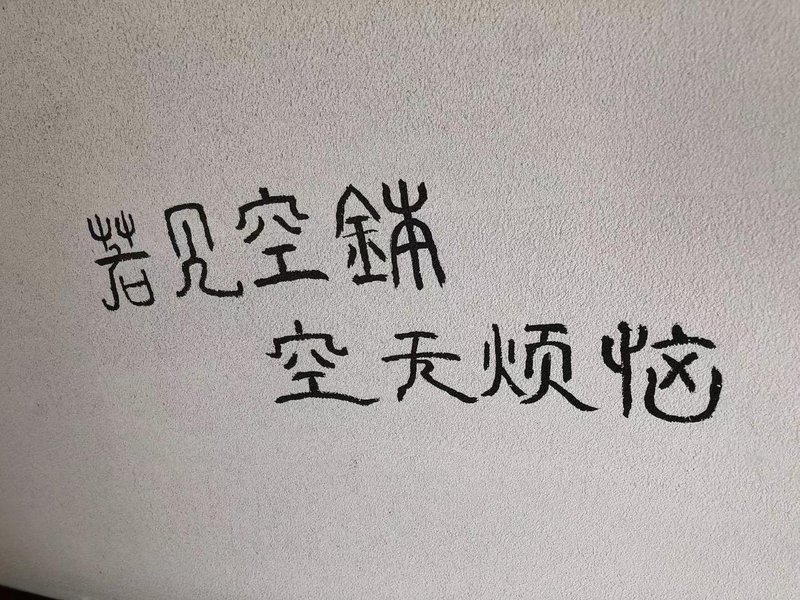 若见空鋪
空无烦恼